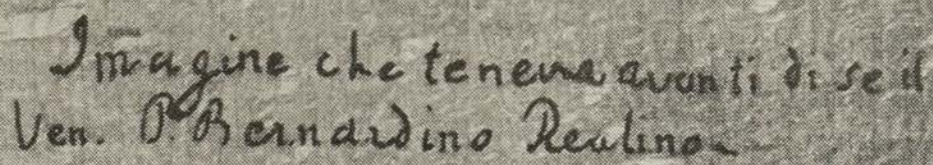 Imagine che teneva avanti di se il
Ven. P. Bernardino Realino